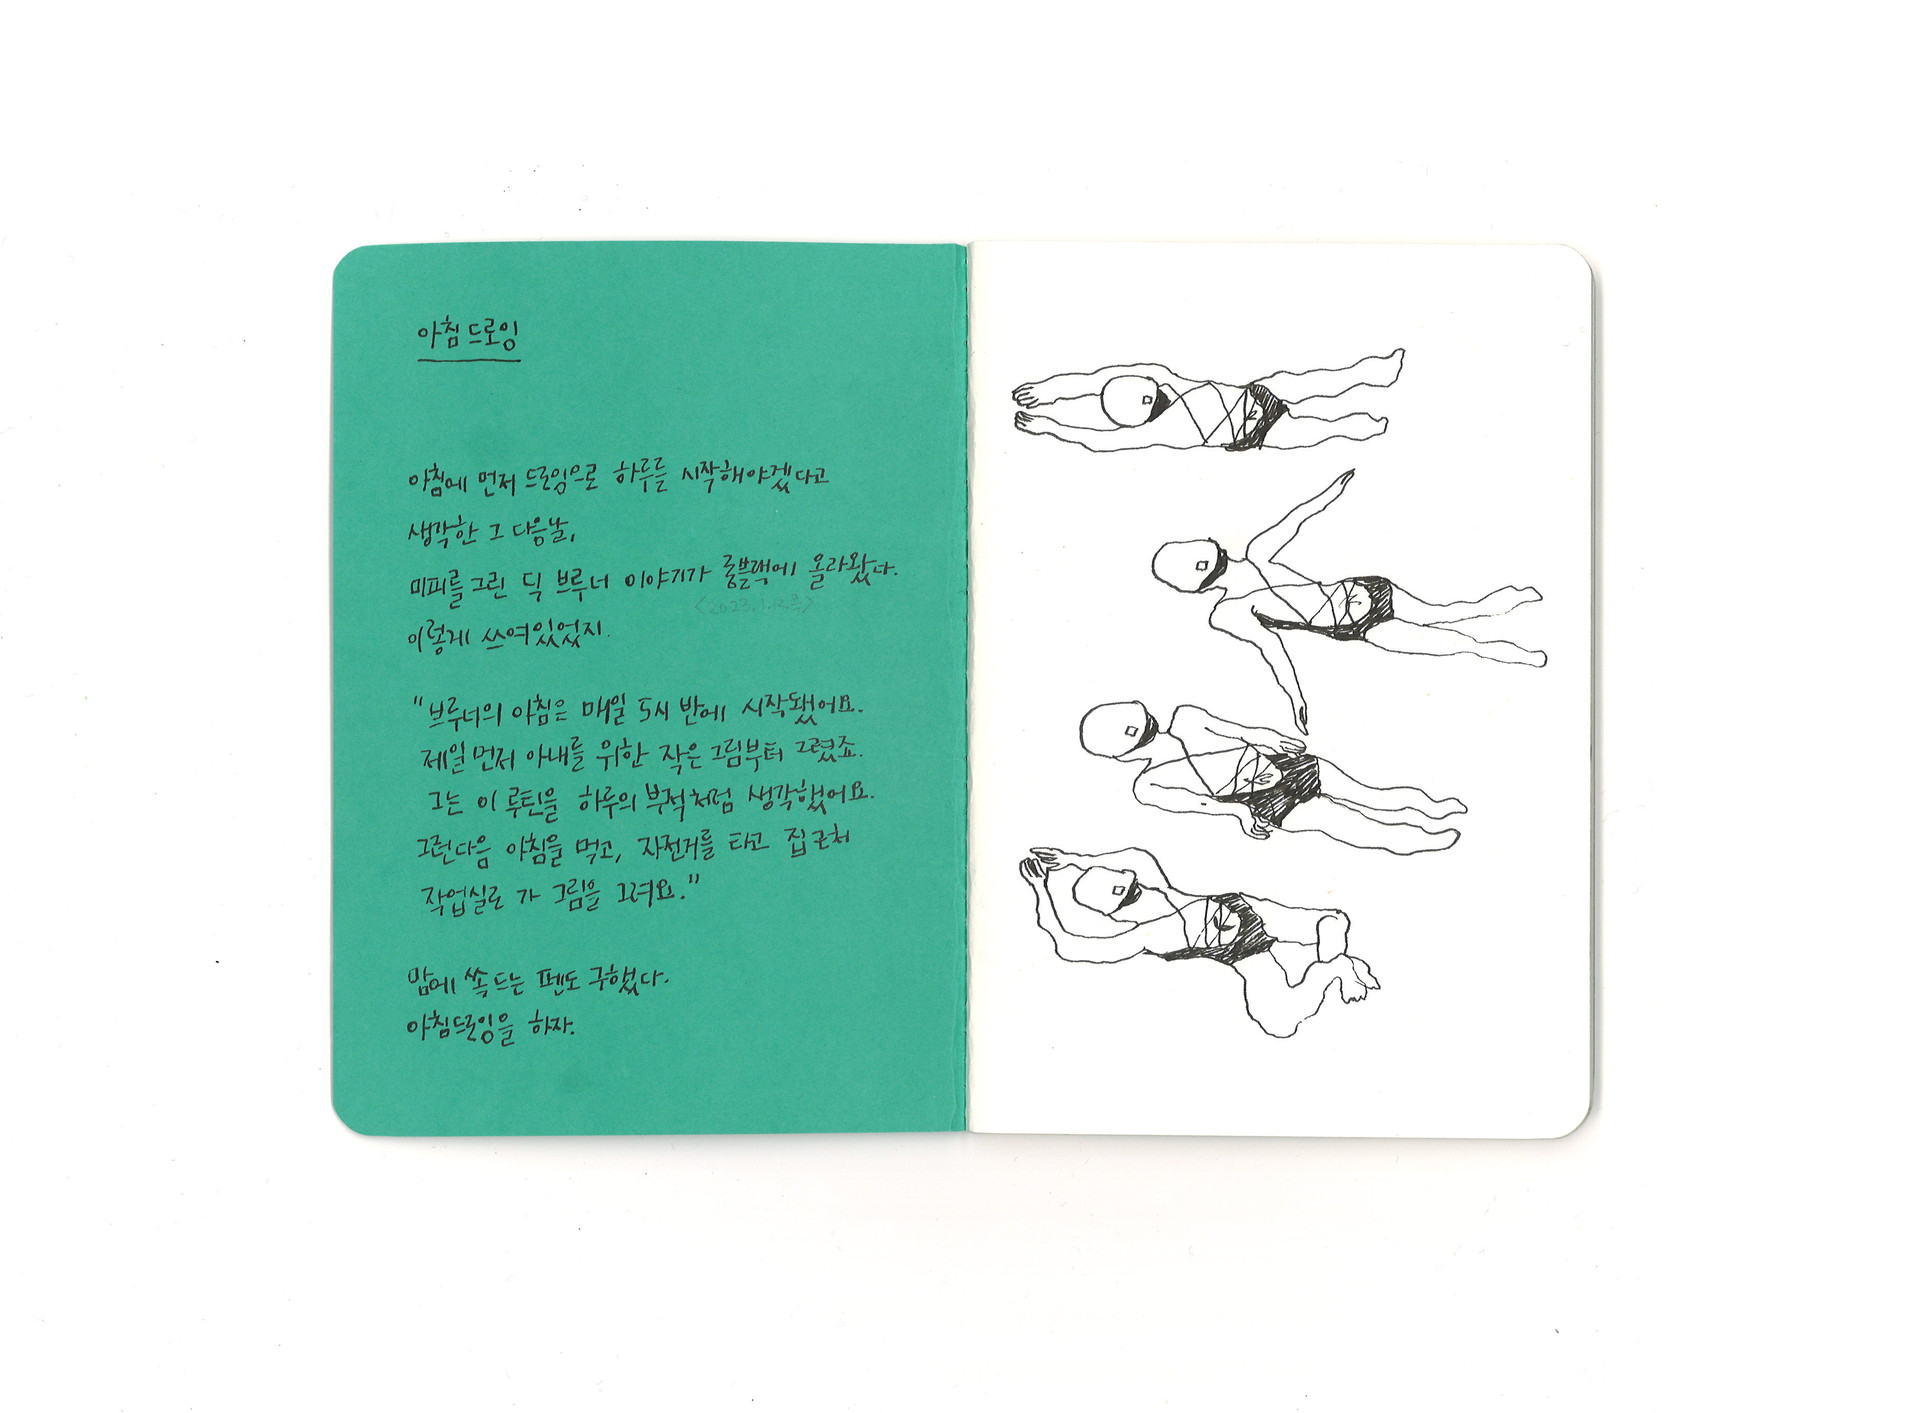 아침 드로잉
아침에 먼저 드로잉으로 하루를 시작해야겠다고
생각한 그 다음날,
미피를 그린 딕 브루너 이야기가 롱블랙에 올라왔다.
<2023.1.12목>
이렇게 쓰여있었지.
"브루너의 아침은 매일 5시 반에 시작됐어요.
제일 먼저 아내를 위한 작은 그림부터 그렸죠.
그는 이 루틴을 하루의 부적처럼 생각했어요.
그런다음 아침을 먹고, 자전거를 타고 집 근처
작업실로 가 그림을 그려요."
맘에 쏙 드는 펜도 구했다.
아침드로잉을 하자.